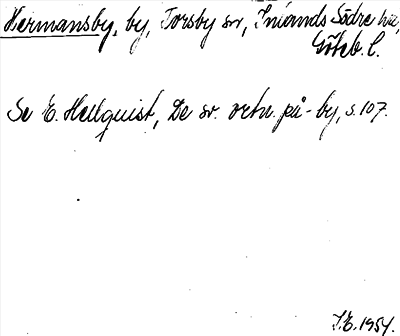 Hermansby, by, Torsby sn, Inlands Södre hd,
Göteb. l.
Se E. Hellquist, De sv. ortn. på -by, s. 107.
J.E. 1954.